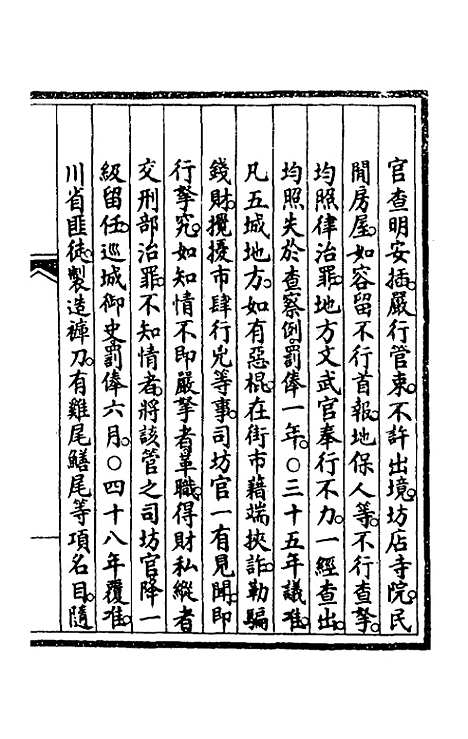 官查明安插。嚴行管束。不許出境。坊店寺院。民
閒房屋。如容留不行首報。地保人等。不行查拏。
均照律治罪。地方文武官奉行不力。一經查出。
均照失於查察例。罰俸一年。○三十五年議准。
凡五城地方。如有惡棍。在街市藉端挾詐。勒騙
錢財。攪擾市肆行兇等事。司坊官一有見聞。即
行拏究。如知情不即嚴拏者。革職。得財私縱者
交刑部治罪。不知情者。將該管之司坊官降一
級留任。巡城御史。罰俸六月。○四十八年覆准。
川省匪徒。製造褲刀。有雞尾鱔尾等項名目。隨